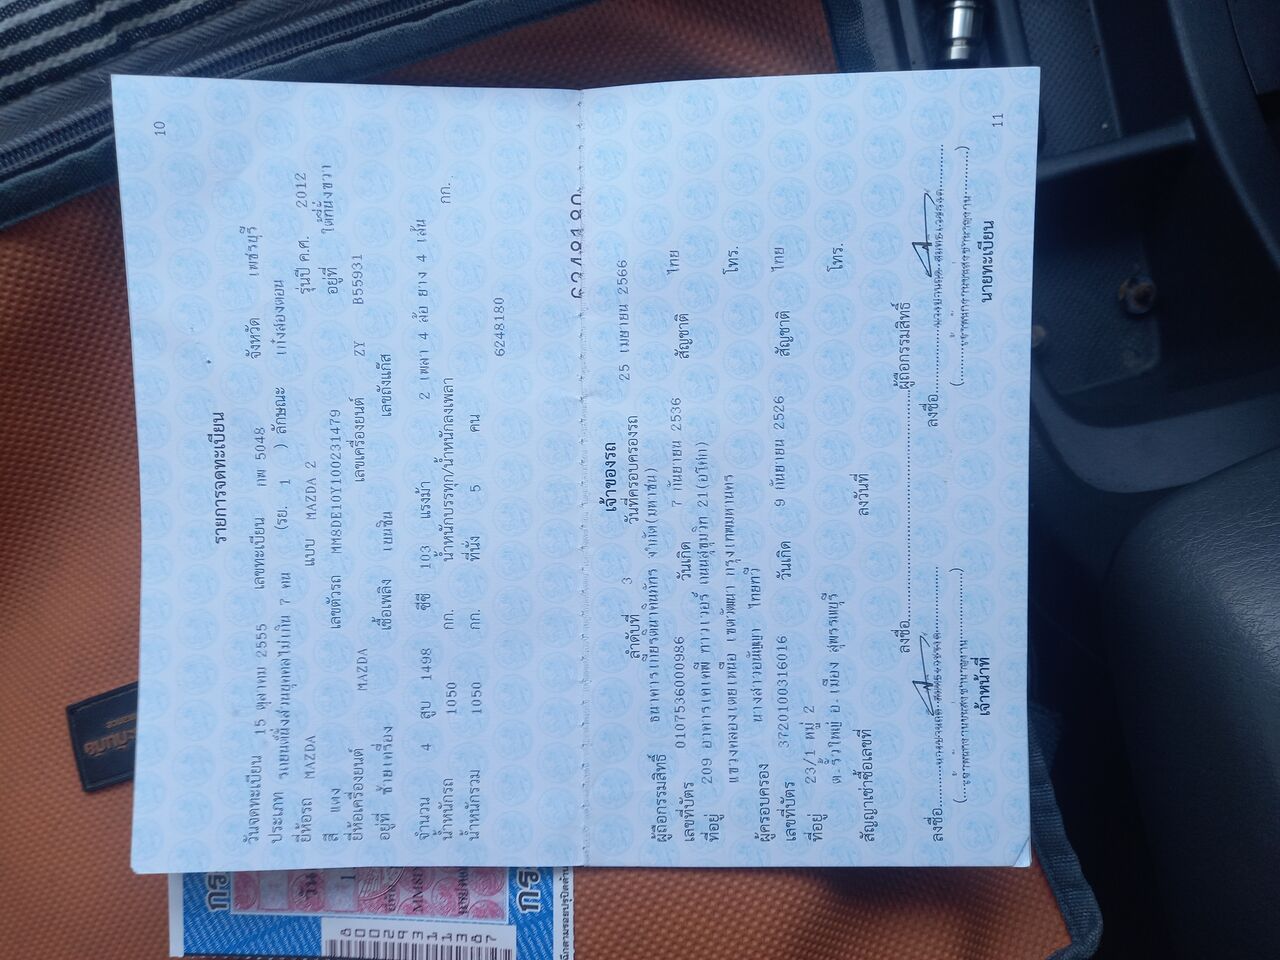 10
รายการจดทะเบียน
วันจดทะเบียน 15 ตุลาคม 2555 เลขทะเบียน กพ 5048 จังหวัด เพชรบุรี
ประเภท รถยนต์นั่งส่วนบุคคลไม่เกิน 7 คน (รย. 1 ) ลักษณะ เก๋งสองตอน
ยี่ห้อรถ MAZDA แบบ MAZDA 2 รุ่นปี ค.ศ. 2012
สี แดง เลขตัวรถ MM8DE10Y100231479 อยู่ที่ ใต้ที่นั่งขวา
ยี่ห้อเครื่องยนต์ MAZDA เลขเครื่องยนต์ ZY B55931
อยู่ที่ ซ้ายเครื่อง เชื้อเพลิง เบนซิน เลขถังแก๊ส
จำนวน 4 สูบ 1498 ซีซี 103 แรงม้า 2 เพลา 4 ล้อ ยาง 4 เส้น
น้ำหนักรถ 1050 กก. น้ำหนักบรรทุก/น้ำหนักลงเพลา กก.
น้ำหนักรวม 1050 กก. ที่นั่ง 5 คน
6248180
6248180
เจ้าของรถ
ลำดับที่ 3 วันที่ครอบครองรถ 25 เมษายน 2566
ผู้ถือกรรมสิทธิ์ ธนาคารเกียรตินาคินภัทร จำกัด(มหาชน)
เลขที่บัตร 0107536000986 วันเกิด 7 กันยายน 2536 สัญชาติ ไทย
ที่อยู่ 209 อาคารเคเคพี ทาวเวอร์ ถนนสุขุมวิท 21(อโศก)
แขวงคลองเตยเหนือ เขตวัฒนา กรุงเทพมหานคร โทร.
ผู้ครอบครอง นางสาวอนัญญา ไทยทวี
เลขที่บัตร 3720100316016 วันเกิด 9 กันยายน 2526 สัญชาติ ไทย
ที่อยู่ 23/1 หมู่ 2
ต.รั้วใหญ่ อ.เมือง สุพรรณบุรี โทร.
สัญญาเช่าซื้อเลขที่ ลงวันที่
ลงชื่อ ผู้ถือกรรมสิทธิ์
ลงชื่อ ลงชื่อ
เจ้าหน้าที่ นายทะเบียน
11
กร
กร
8002931138